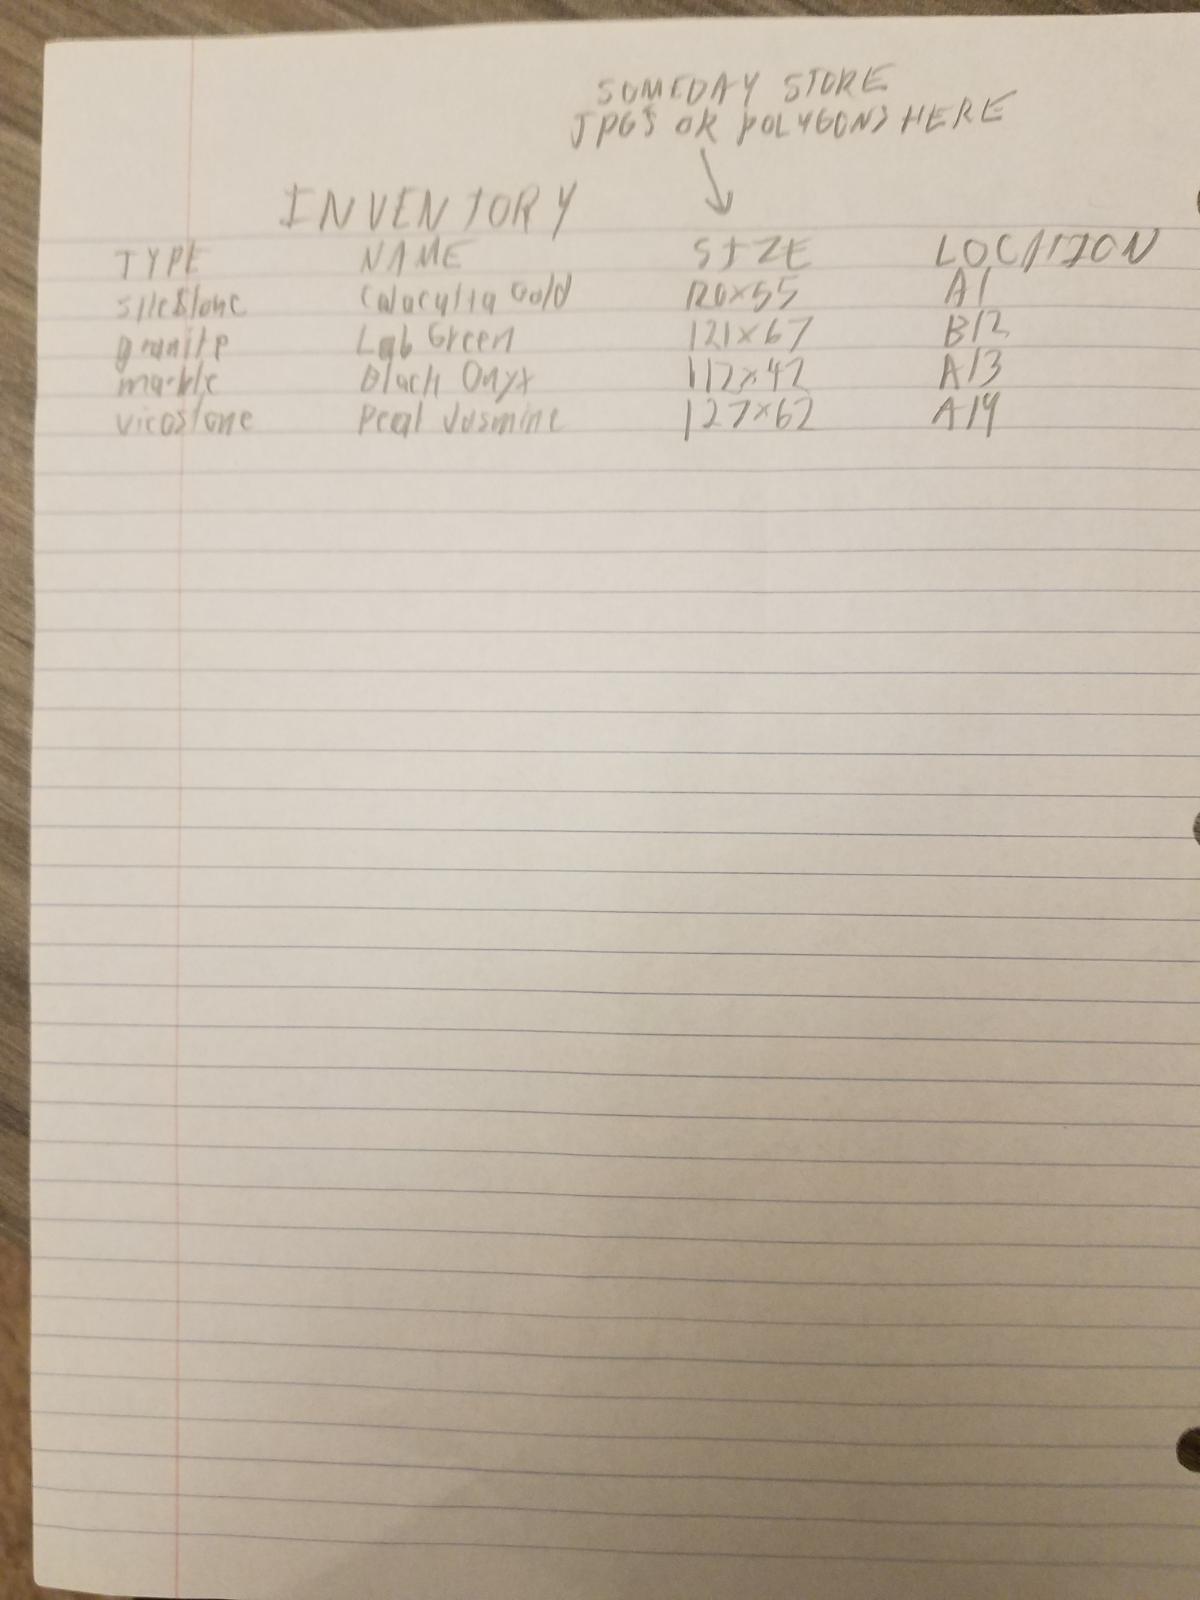 SOMEDAY STORE
JPGS OR POLYGONS HERE
INVENTORY
TYPE NAME SIZE LOCATION
silestone Calacutta Gold 120x55 A1
granite Lab Green 121x67 B12
marble Black Onyx 117x42 A13
vicostone Peal Jasmine 127x62 A14